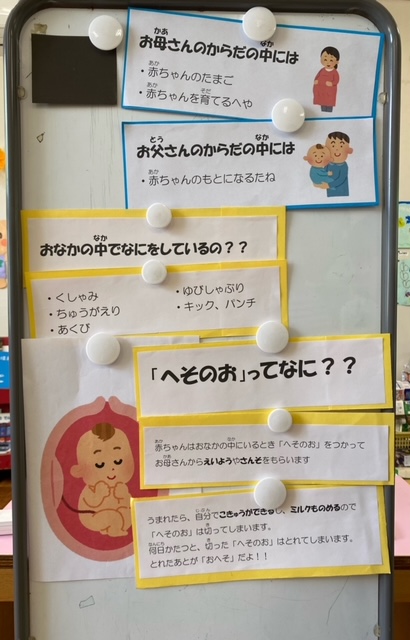 お母さんのからだの中には
・赤ちゃんのたまご
・赤ちゃんを育てるへや
お父さんのからだの中には
・赤ちゃんのもとになるたね
おなかの中でなにをしているの？？
・くしゃみ
・ちゅうがえり
・あくび
・ゆびしゃぶり
・キック、パンチ
「へそのお」ってなに？？
赤ちゃんはおなかの中にいるとき「へそのお」をつかって
お母さんからえいようやさんそをもらいます
うまれたら、自分でこきゅうができるし、ミルクものめるので
「へそのお」は切ってしまいます。
何日かたつと、切った「へそのお」はとれてしまいます。
とれたあとが「おへそ」だよ！！